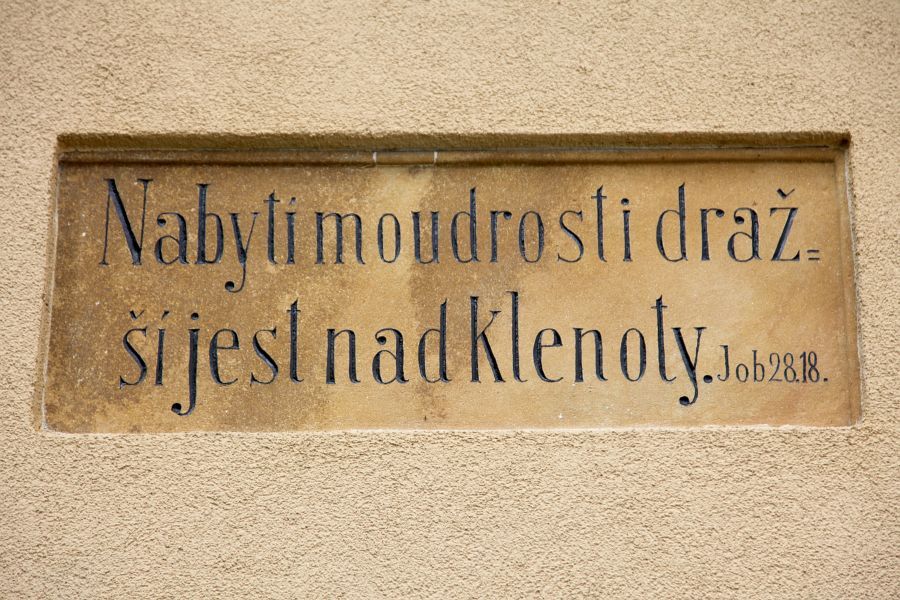 Nabytí moudrosti draž=
ší jest nad Klenoty. Job 28.18.